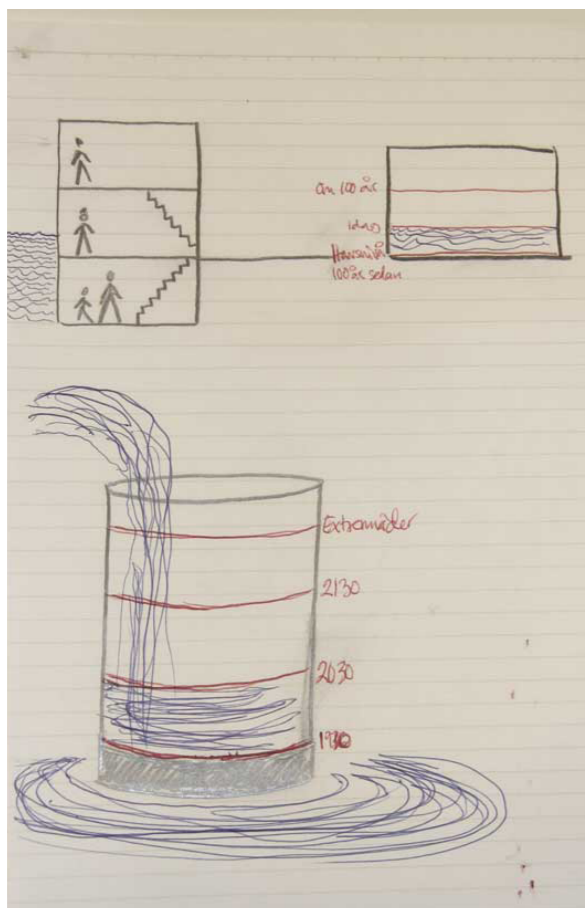 Om 100 år
idag
Havsnivån
100 år sedan
Extremväder
2130
2030
1930